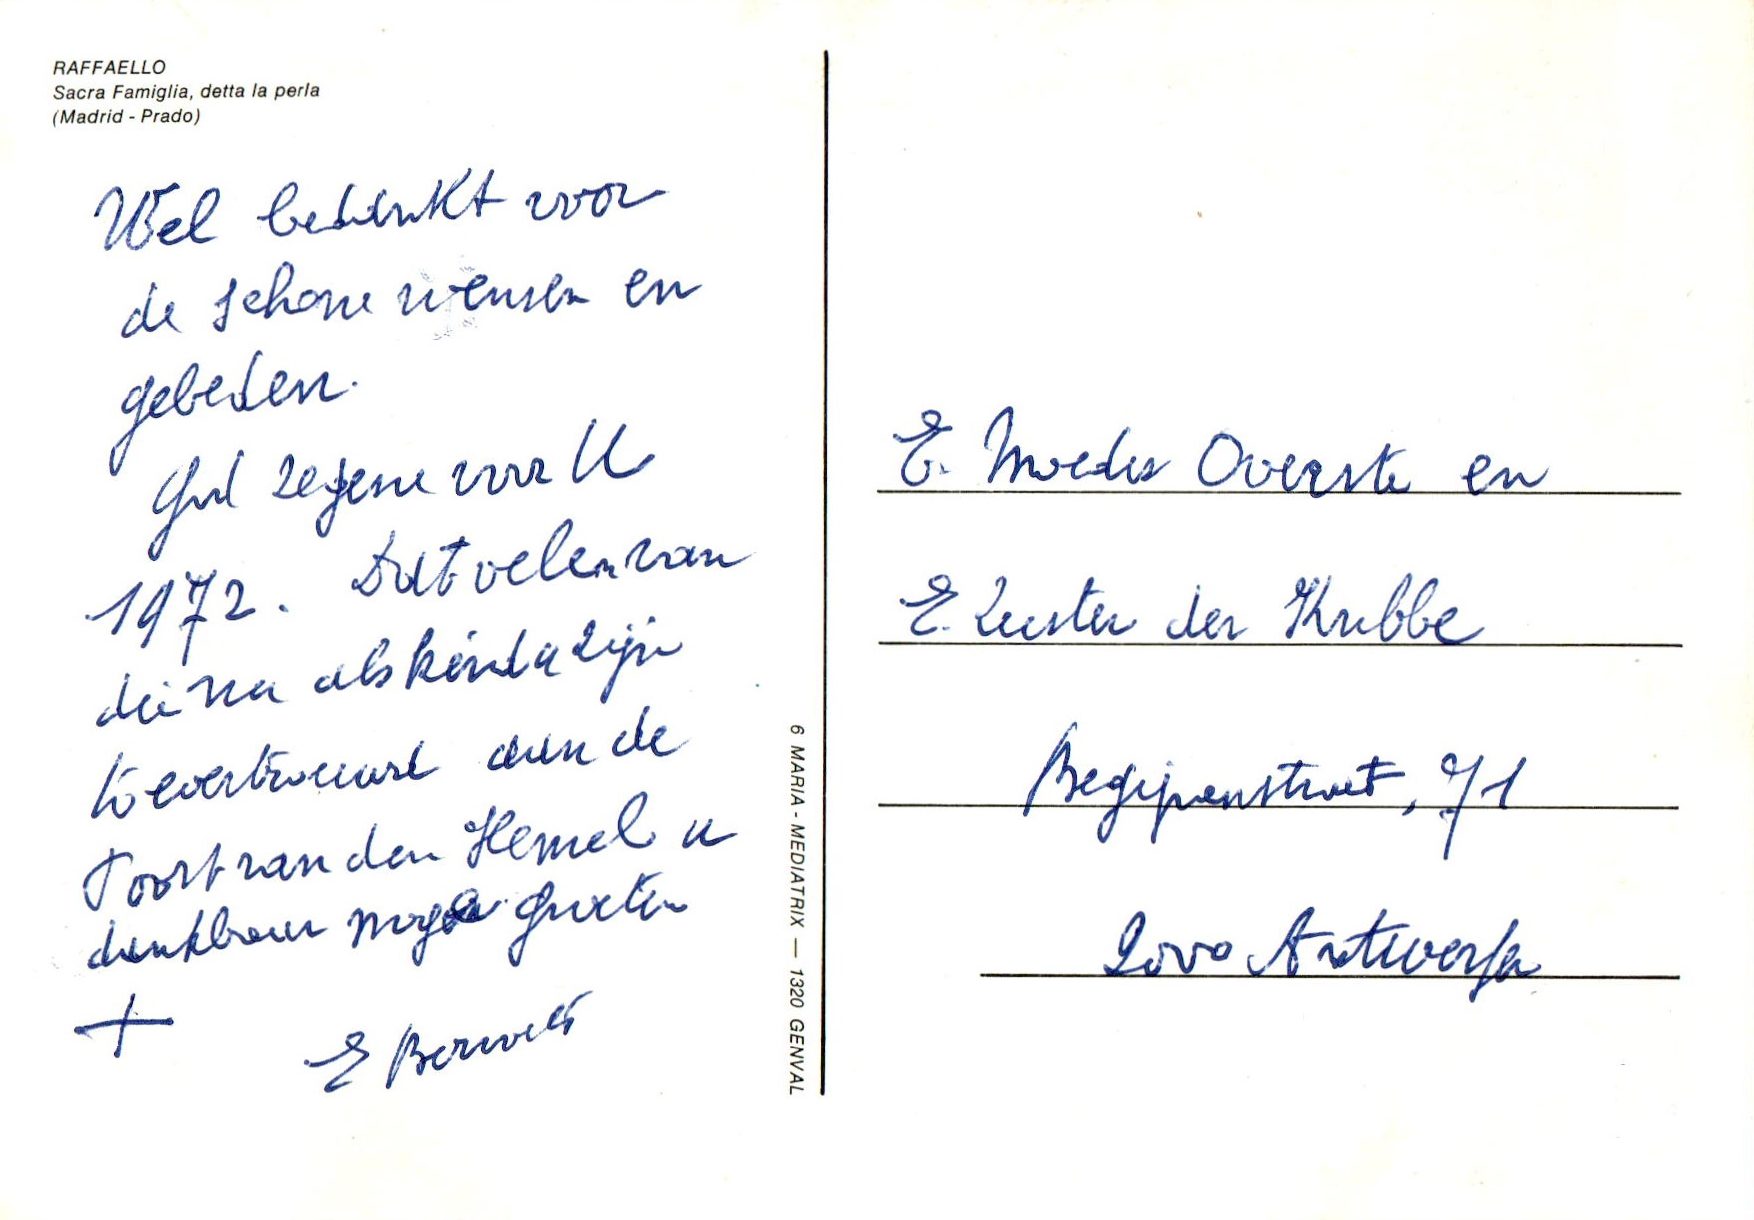 RAFFAELLO
Sacra Famiglia, detta la perla
(Madrid - Prado)
Wel bedankt voor
de schone wensen en
gebeden.
God zegene voor U
1972. Dat velen van
die na als kind zijn
toevertrouwd aan de
Poort van den Hemel u
dankbaar moge groeten
+
E
E. Moeder Overste en
E. Zuster der Kribbe
Begijnenstraat, 71
2000 Antwerpen
6 MARIA - MEDIATRIX — 1320 GENVAL